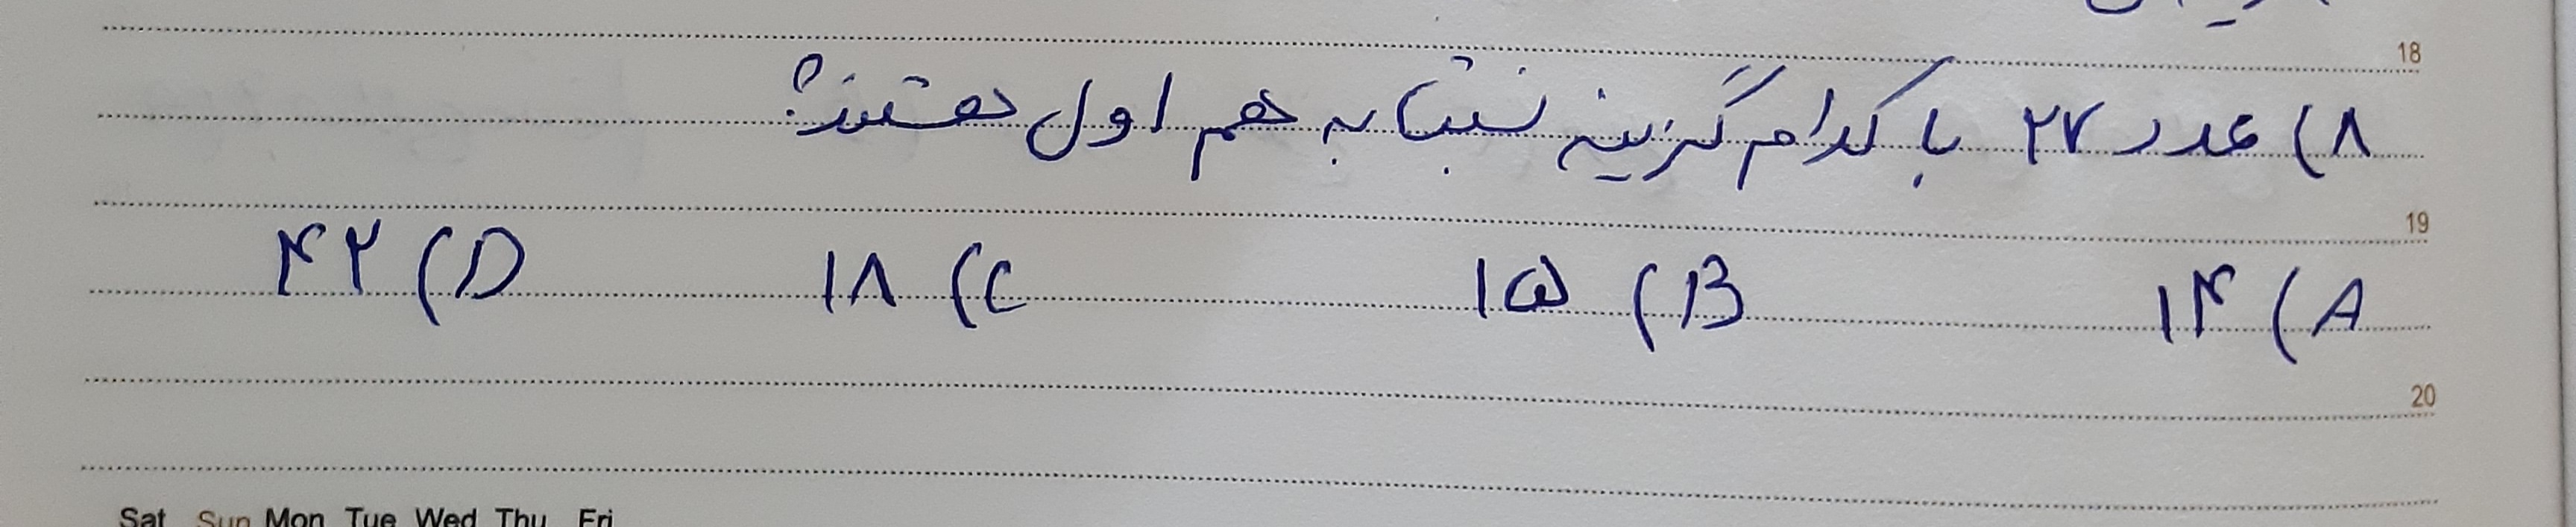 18
۸) عدد ۲۷ با کدام گزینه نسبت به هم اول هستند؟
19
A) ۱۴ B) ۱۵ C) ۱۸ D) ۴۲
20
Sat Sun Mon Tue Wed Thu Fri